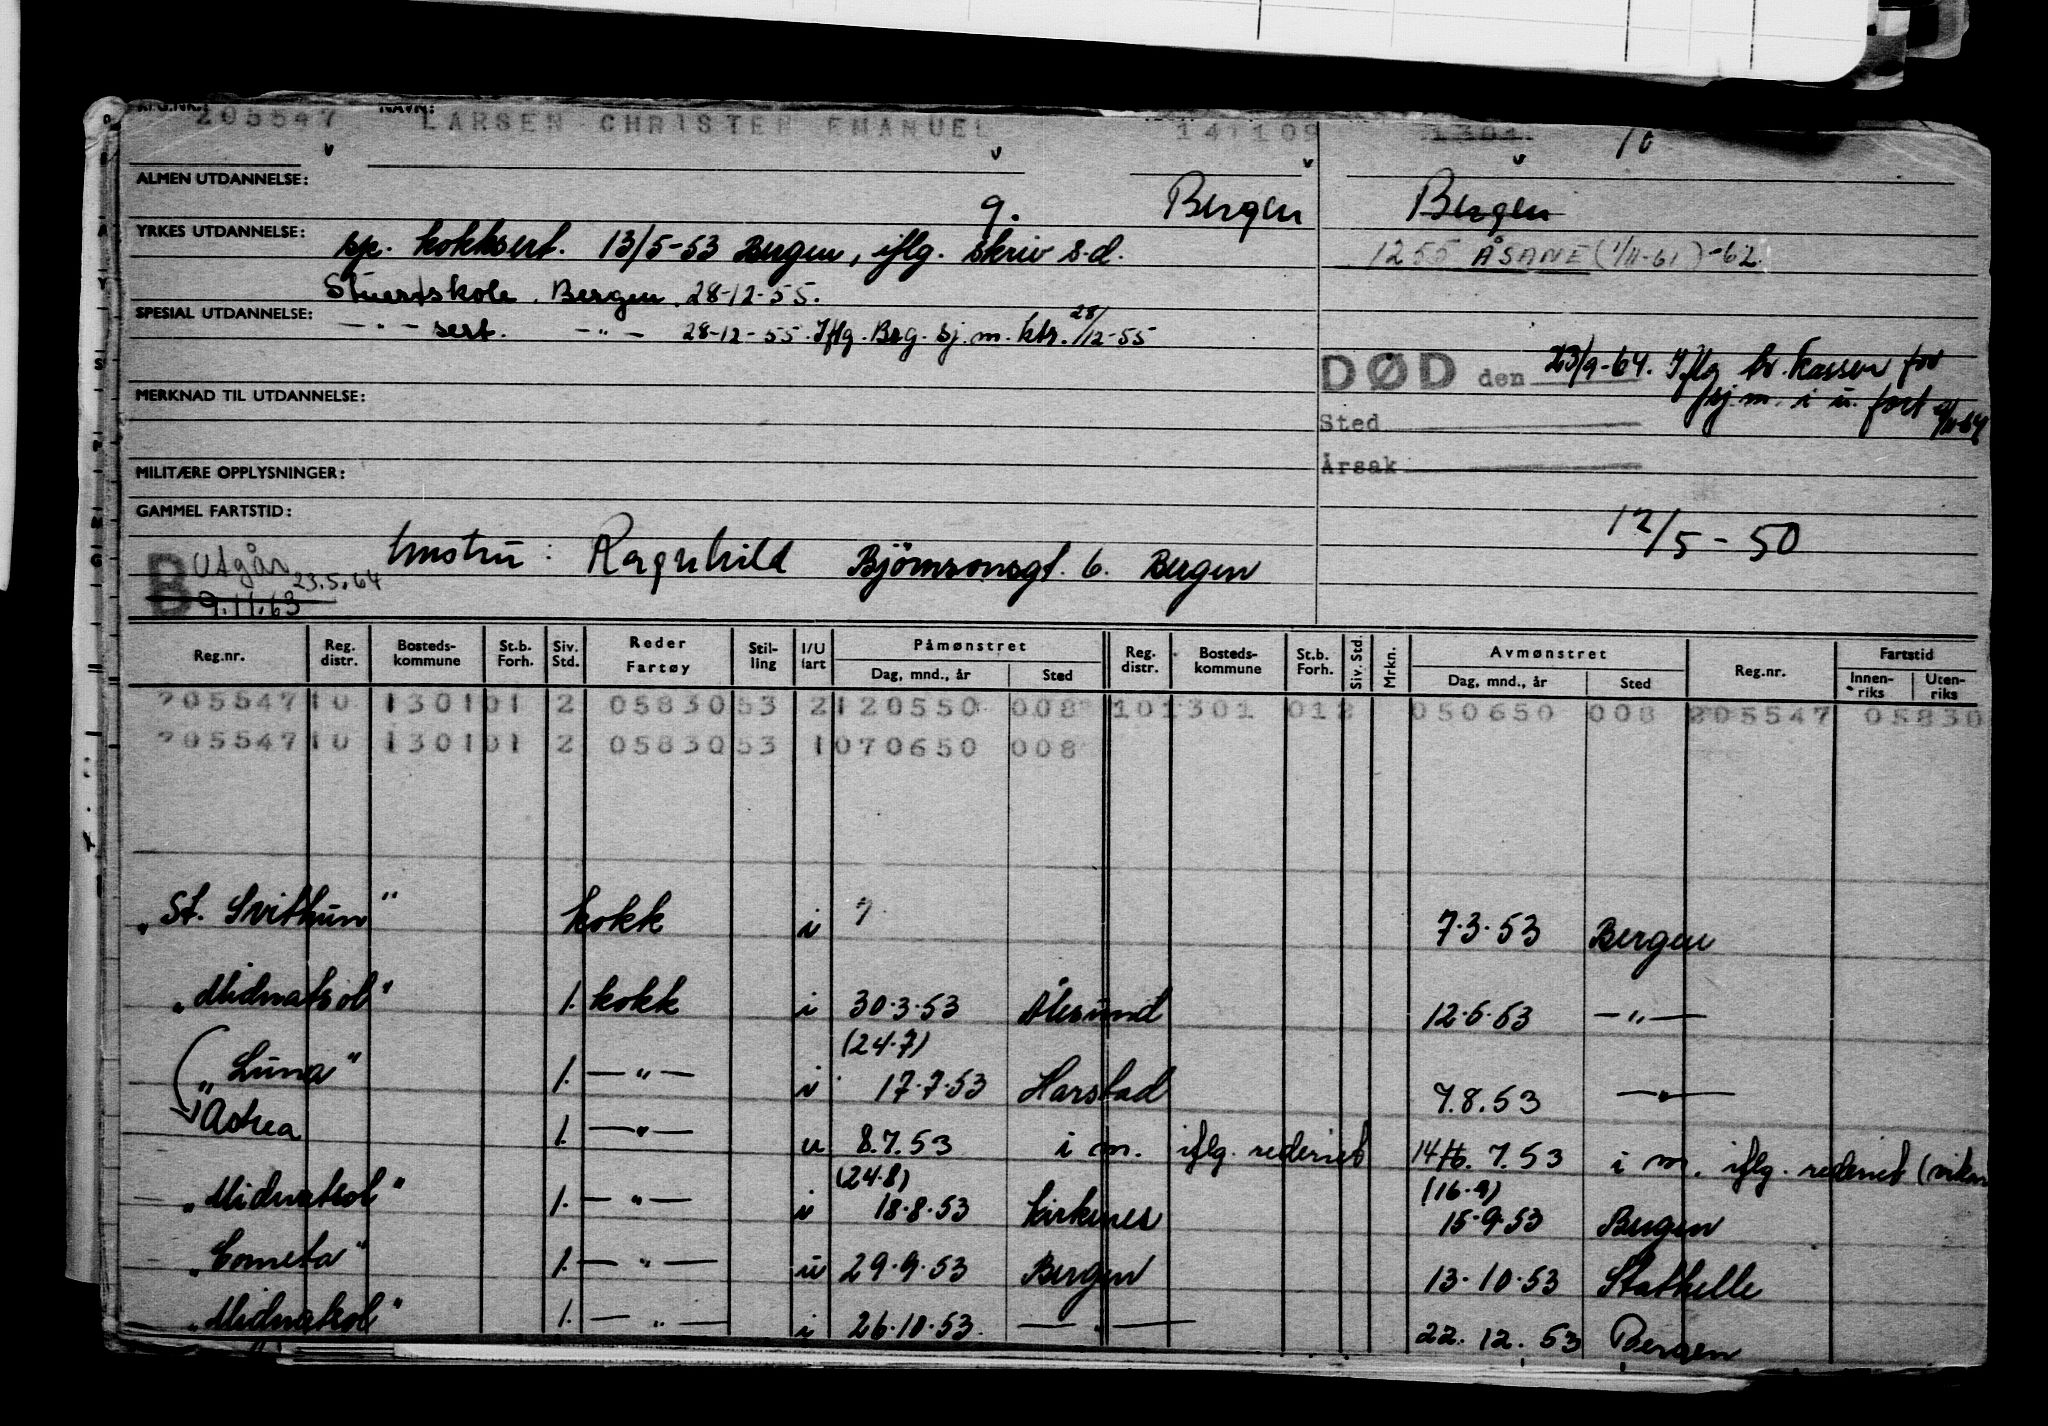 REG.NR.: NAVN:
205547 LARSEN CHRISTEN EMANUEL 141109 1301. 10
ALMEN UTDANNELSE:
g. Bergen Bergen
YRKES UTDANNELSE: sp. kokksert. 13/5-53 Bergen, iflg. skriv s.d.
1255 ÅSANE (1/11-61) -62
Stuertskole. Bergen. 28-12-55.
SPESIAL UTDANNELSE: —"— sert. —"— 28-12-55. Iflg. Brg. sj. m. ktr. 28/12-55
DØD den 23/9-64. Iflg br. kassen for
sj.m. i u. fart
MERKNAD TIL UTDANNELSE:
Sted
Årsak
MILITÆRE OPPLYSNINGER:
GAMMEL FARTSTID:
12/5-50
hustru: Ragnhild Bjørnsonsgt. 6. Bergen
B Utgår 23.5.64
9.11.63
Reg.nr. Reg. distr. Bosteds-kommune St.b. Forh. Siv. Std. Reder Fartøy Stil-ling I/U fart Påmønstret Dag, mnd., år Sted Reg. distr. Bosteds-kommune St.b. Forh. Siv. Std. Mrkn. Avmønstret Dag, mnd., år Sted Reg.nr. Fartstid Innen-riks Uten-riks
205547 10 1301 01 2 05830 53 2 120550 008 10 1301 01 2 050650 008 205547 05830
205547 10 1301 01 2 05830 53 1 070650 008
„St. Svithun" kokk i ? 7.3.53 Bergen
„Midnatsol" 1. kokk i 30.3.53 Ålesund 12.6.53 —"—
(24.7)
„Luna" 1. —"— i 17.7.53 Harstad 7.8.53 —"—
Astrea 1. —"— u 8.7.53 i m. iflg. rederiet 7.53 i m. iflg. rederiet
(24.8) (16.9)
„Midnatsol" 1. —"— i 18.8.53 Kirkenes 15.9.53 Bergen
„Cometa" 1. —"— u 29.9.53 Bergen 13.10.53 Stathelle
„Midnatsol" 1. —"— i 26.10.53 —"— 22.12.53 Bergen